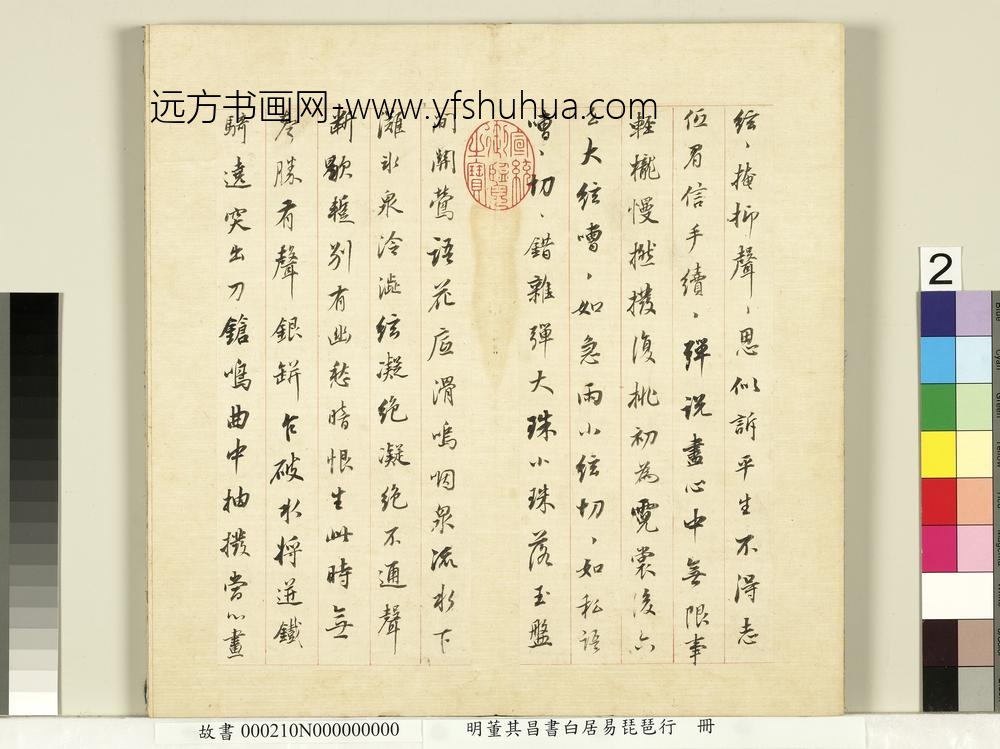 远方书画网-www.yfshuhua.com
絃、掩抑聲、思似訴平生不得志
低眉信手續、彈説盡心中無限事
輕攏慢撚撥復挑初為霓裳後六
么大絃嘈、如急雨小絃切、如私語
嘈、切、錯雜彈大珠小珠落玉盤
間關鶯語花底滑嗚咽泉流水下
灘氷泉冷澁絃凝絶凝絶不通聲
歇輒別有幽愁暗恨生此時無
聲勝有聲銀缾乍破水將迸鐵
騎遠突出刀鎗鳴曲中抽撥當心畫
宣統御覽之寶
2
故書 000210N000000000
明董其昌書白居易琵琶行 冊